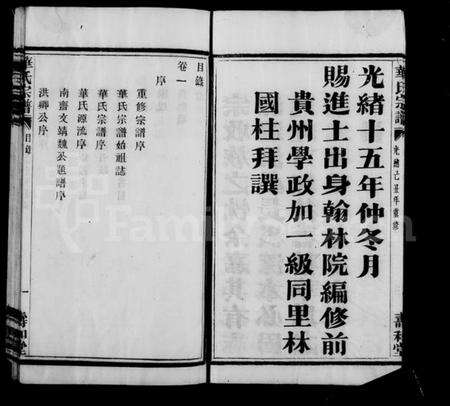 華氏宗譜
光緒己丑年重修
光緒十五年仲冬月
賜進士出身翰林院編修前
貴州學政加一級同里林
國柱拜譔
目錄
卷一
序
重修宗譜序
華氏宗譜始祖誌
華氏宗譜序
華氏源流序
南齋文靖魏公題譜序
洪卿公序
華氏宗譜
目錄
一